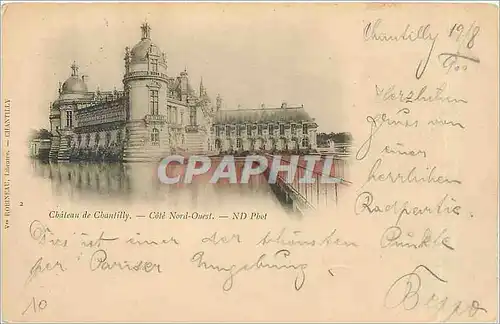 Chantilly 19/8
900
Herzlichen
Gruss von
einer
herrlichen
Radpartie.
CPHARPHIL
Vve ROBINEAU, Libraire. — CHANTILLY
2
Château de Chantilly. — Côté Nord-Ouest. — ND Phot
Dies ist einer der schönsten Punkte
per Pariser Umgebung.
Beppo
10